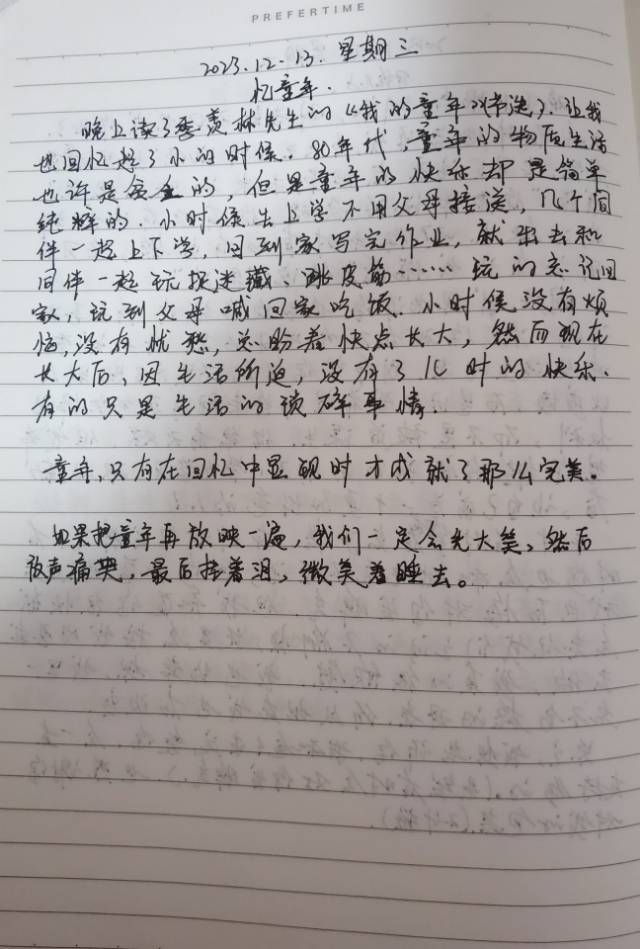 PREFERTIME
2023.12.13. 星期三
忆童年.
晚上读了季羡林先生的《我的童年》(节选). 让我
也回忆起了小的时候. 80年代, 童年的物质生活
也许是贫乏的, 但是童年的快乐却是简单
纯粹的. 小时候去上学不用父母接送, 几个同
伴一起上下学, 回到家写完作业, 就出去和
同伴一起玩捉迷藏、跳皮筋…… 玩的忘记回
家, 玩到父母喊回家吃饭. 小时候没有烦
恼, 没有忧愁, 总盼着快点长大, 然而现在
长大后, 因生活所迫, 没有了儿时的快乐.
有的只是生活的琐碎事情.
童年, 只有在回忆中显现时才成就了那么完美。
如果把童年再放映一遍, 我们一定会先大笑, 然后
放声痛哭, 最后挂着泪, 微笑着睡去。